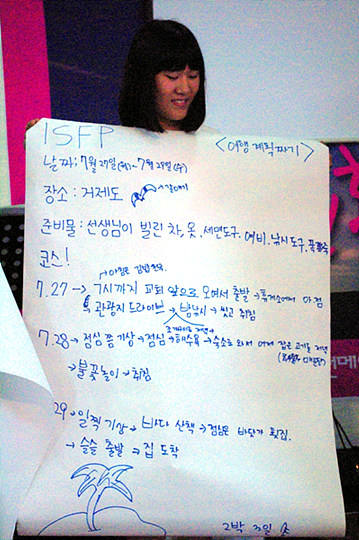 ISFP
<여행 계획 짜기>
날짜: 7월 27일(화)~7월 29일(수)
장소: 거제도 갈매기
준비물: 선생님이 빌린 차, 옷, 세면도구, 여비, 낚시도구, 폭죽
코스!
아침은 김밥천국
7.27 → 7시까지 교회 앞으로 모여서 출발 → 휴게소에서 아점
관광지 드라이브 → 밤낚시 → 씻고 취침
7.28 → 점심 쯤 기상 → 점심 → 해수욕 → 숙소로 와서
→ 불꽃놀이 → 취침
29 → 일찍 기상 → 바다 산책 → 점심은 바닷가 횟집
→ 슬슬 출발 → 집 도착
2박 3일